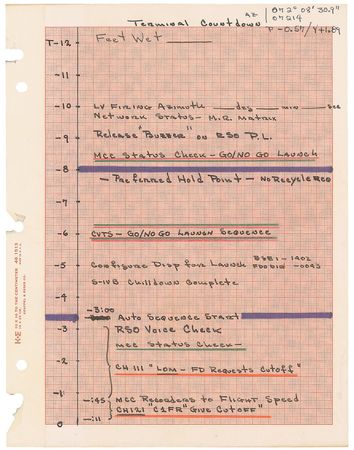 Terminal Countdown
AZ 072° 08' 30.9"
07214
P - 0.57/Y+1.89
T-12 Feet Wet
-11
-10
LV Firing Azimuth deg min sec
Network Status - M.R. Matrix
-9 Release "Bubber" on RSO P.L.
MCC Status Check - GO/NO GO Launch
-8
- Preferred Hold Point - No Recycle Req
-7
-6 CVTS - GO/NO GO Launch Sequence
-5 Configure Disp for Launch BSE1 - 1402
FDO DIG -0043
S-IVB Chilldown Complete
-4
-3:00 Auto Sequence Start
-3 RSO Voice Check
MCC Status Check -
-2
CH 111 "LOM - FD Requests Cutoff"
-1
-:45 MCC Recorders to Flight Speed
-:11 CH121 "C1FR" Give Cutoff"
0
K+E